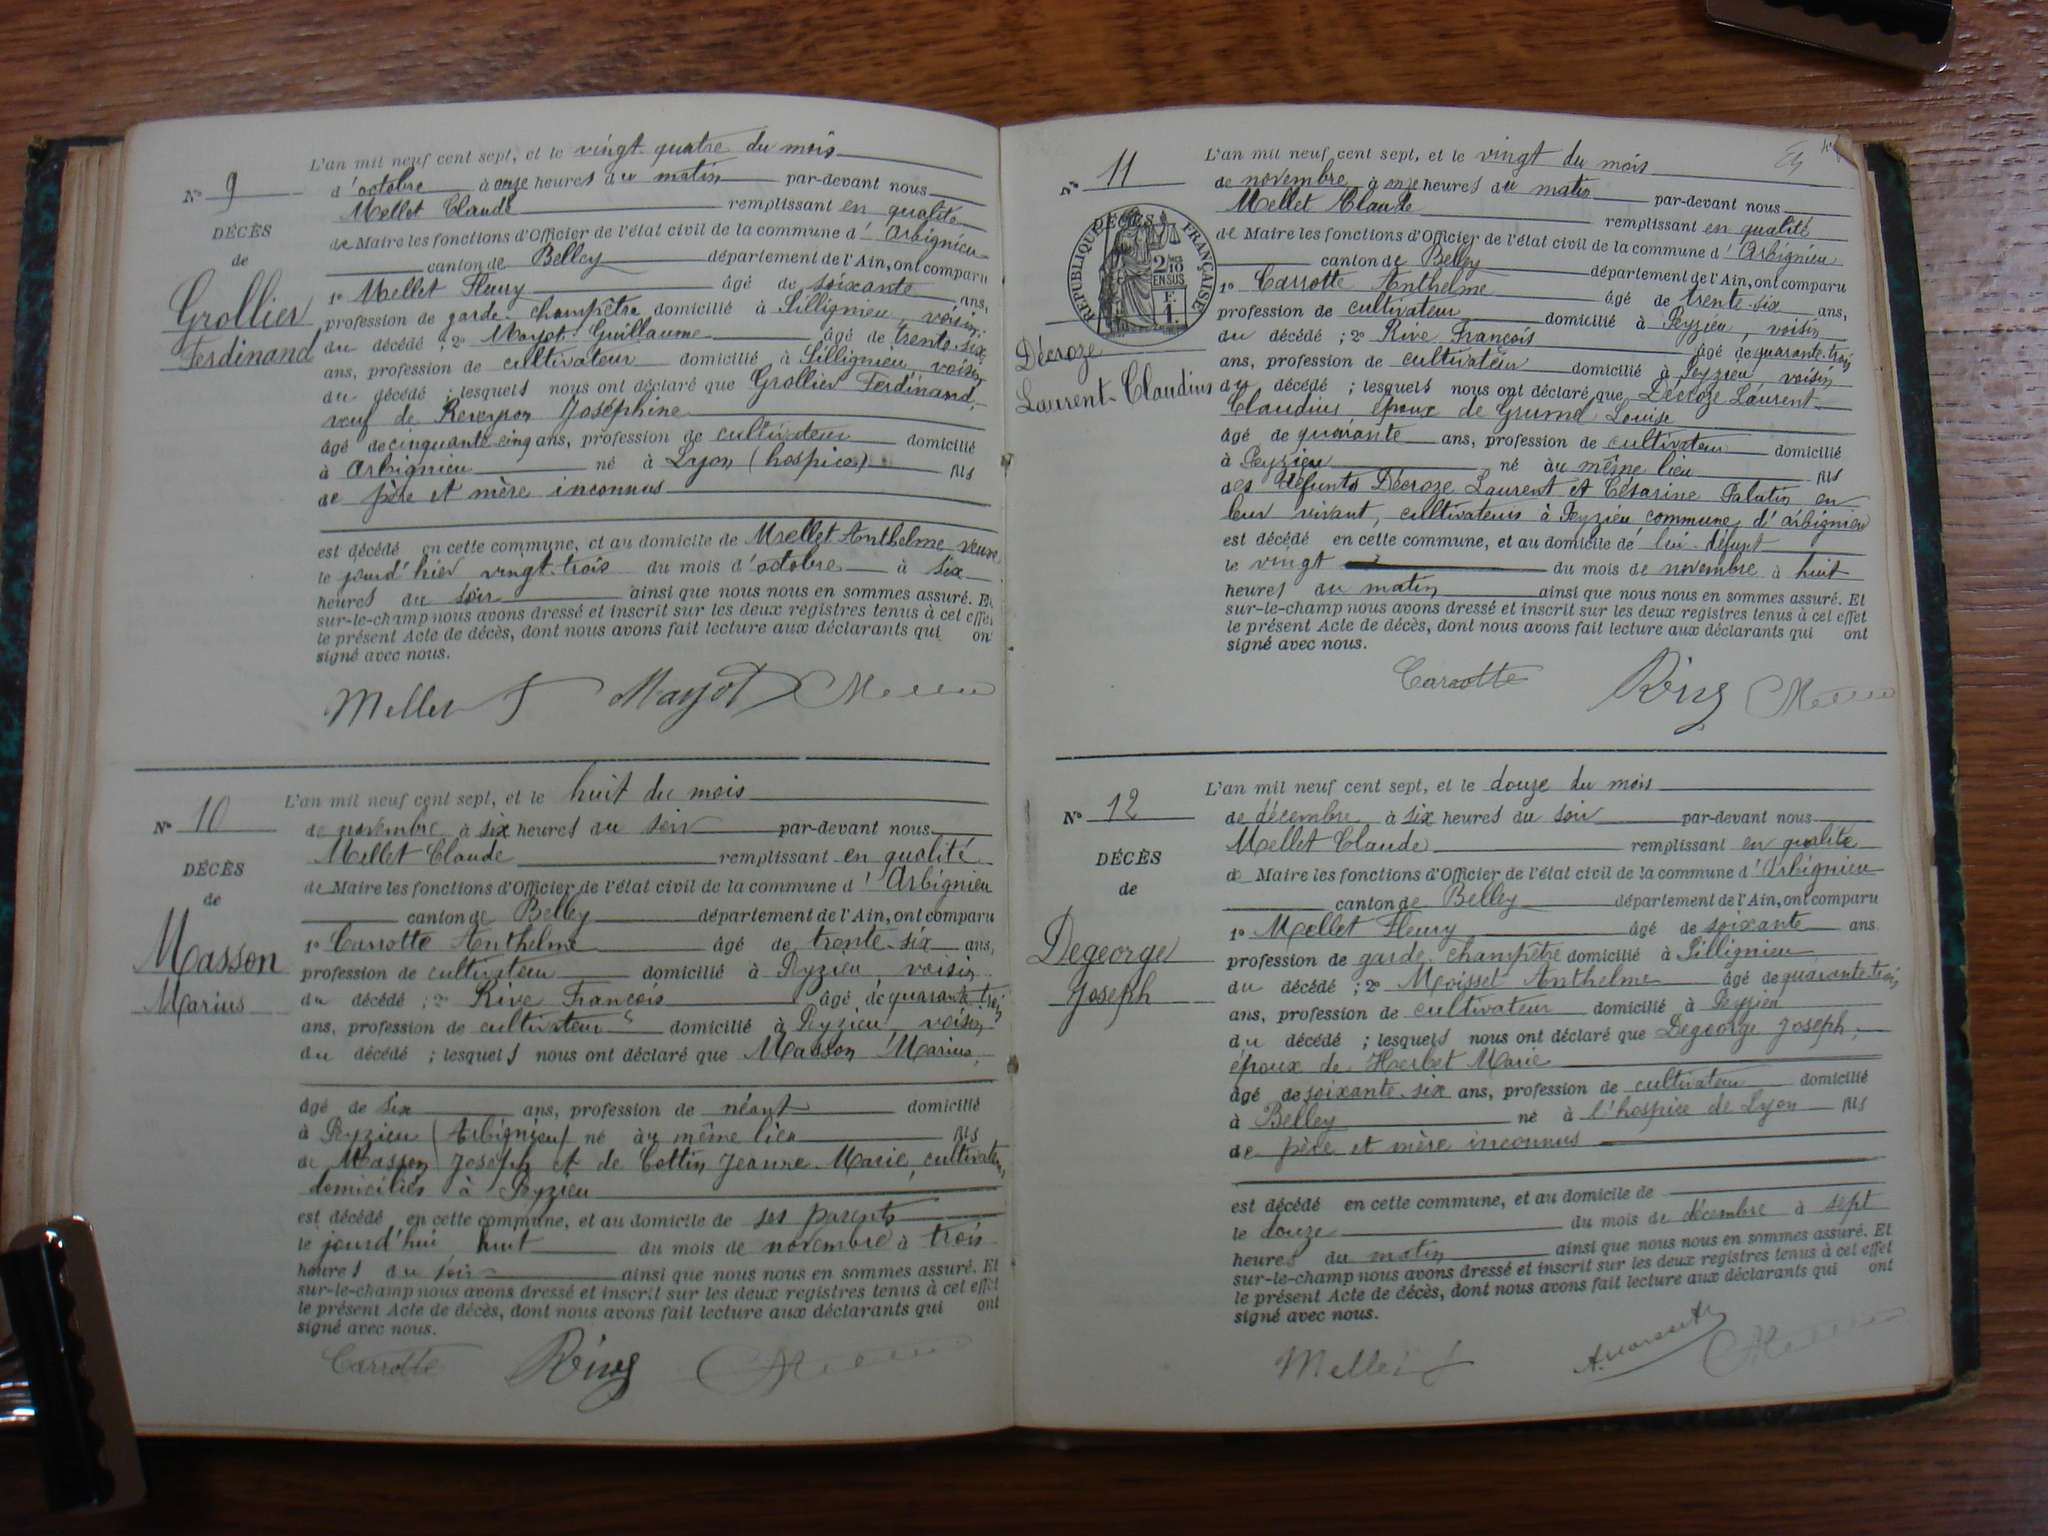 L'an mil neuf cent sept, et le vingt quatre du mois
N° 9
d'octobre à onze heures du matin par-devant nous
Mellet Claude remplissant en qualité
DÉCÈS
de Maire les fonctions d'Officier de l'état civil de la commune d'Arbignieu
de
canton de Belley département de l'Ain, ont comparu
Grollier
1° Mellet Fleury âgé de soixante ans,
profession de garde-champêtre domicilié à Sillignieu, voisin
Ferdinand
du décédé ; 2° Marjot Guillaume âgé de trente-six
ans, profession de cultivateur domicilié à Sillignieu, voisin
du décédé ; lesquels nous ont déclaré que Grollier Ferdinand,
veuf de Joséphine
âgé de cinquante cinq ans, profession de cultivateur domicilié
à Arbignieu né à Lyon (hospice) fils
de père et mère inconnus
est décédé en cette commune, et au domicile de Mellet Anthelme veuve
le jourd'hier vingt-trois du mois d'octobre à six
heures du soir ainsi que nous nous en sommes assuré. Et
sur-le-champ nous avons dressé et inscrit sur les deux registres tenus à cet effet
le présent Acte de décès, dont nous avons fait lecture aux déclarants qui ont
signé avec nous.
Mellet F Marjot C Mellet
L'an mil neuf cent sept, et le huit du mois
N° 10
de novembre à six heures du soir par-devant nous
Mellet Claude remplissant en qualité
DÉCÈS
de Maire les fonctions d'Officier de l'état civil de la commune d'Arbignieu
de
canton de Belley département de l'Ain, ont comparu
Masson
1° Carrotte Anthelme âgé de trente-six ans,
profession de cultivateur domicilié à Peyzieu, voisin
Marius
du décédé ; 2° Rive François âgé de quarante trois
ans, profession de cultivateur domicilié à Peyzieu, voisin
du décédé ; lesquels nous ont déclaré que Masson Marius,
âgé de six ans, profession de néant domicilié
à Peyzieu (Arbignieu) né au même lieu fils
de Masson Joseph et de Cottin Jeanne-Marie, cultivateurs
domiciliés à Peyzieu
est décédé en cette commune, et au domicile de ses parents
le jourd'hui huit du mois de novembre à trois
heures du soir ainsi que nous nous en sommes assuré. Et
sur-le-champ nous avons dressé et inscrit sur les deux registres tenus à cet effet
le présent Acte de décès, dont nous avons fait lecture aux déclarants qui ont
signé avec nous.
Carrotte Rive C Mellet
L'an mil neuf cent sept, et le vingt du mois
N° 11
de novembre à onze heures du matin par-devant nous
Mellet Claude remplissant en qualité
DÉCÈS
RÉPUBLIQUE FRANÇAISE
2/10 EN SUS
de Maire les fonctions d'Officier de l'état civil de la commune d'Arbignieu
canton de Belley département de l'Ain, ont comparu
1° Carrotte Anthelme âgé de trente-six ans,
profession de cultivateur domicilié à Peyzieu, voisin
Décroze
du décédé ; 2° Rive François âgé de quarante-trois
ans, profession de cultivateur domicilié à Peyzieu voisin
Laurent-Claudius
du décédé ; lesquels nous ont déclaré que Décroze Laurent-
Claudius, époux de Louise
âgé de quarante ans, profession de cultivateur domicilié
à Peyzieu né au même lieu fils
des défunts Décroze Laurent et Césarine Palatin en
leur vivant, cultivateurs à Peyzieu commune d'Arbignieu
est décédé en cette commune, et au domicile de lui défunt
le vingt du mois de novembre à huit
heures du matin ainsi que nous nous en sommes assuré. Et
sur-le-champ nous avons dressé et inscrit sur les deux registres tenus à cet effet
le présent Acte de décès, dont nous avons fait lecture aux déclarants qui ont
signé avec nous.
Carrotte Rive C Mellet
L'an mil neuf cent sept, et le douze du mois
N° 12
de décembre à six heures du soir par-devant nous
Mellet Claude remplissant en qualité
DÉCÈS
de Maire les fonctions d'Officier de l'état civil de la commune d'Arbignieu
de
canton de Belley département de l'Ain, ont comparu
1° Mellet Fleury âgé de soixante ans
Degeorge
profession de garde-champêtre domicilié à Sillignieu
Joseph
du décédé ; 2° Moisset Anthelme âgé de quarante-trois
ans, profession de cultivateur domicilié à Peyzieu
du décédé ; lesquels nous ont déclaré que Degeorge Joseph,
époux de Herbet Marie
âgé de soixante-six ans, profession de cultivateur domicilié
à Belley né à l'hospice de Lyon fils
de père et mère inconnus
est décédé en cette commune, et au domicile de
le douze du mois de décembre à sept
heures du matin ainsi que nous nous en sommes assuré. Et
sur-le-champ nous avons dressé et inscrit sur les deux registres tenus à cet effet
le présent Acte de décès, dont nous avons fait lecture aux déclarants qui ont
signé avec nous.
Mellet F A. Moisset C Mellet